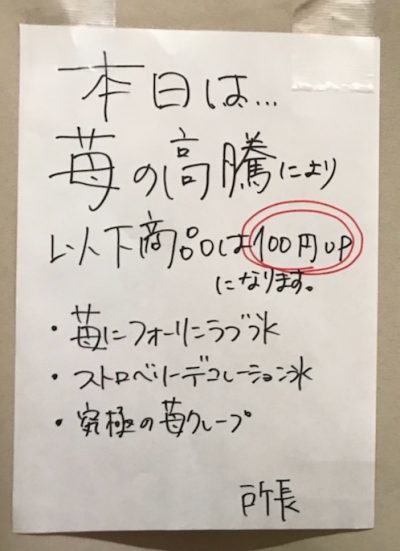 本日は...
苺の高騰により
以下商品は100円UP
になります。
・苺にフォーリンラブ氷
・ストロベリーデコレーション氷
・究極の苺クレープ
所長